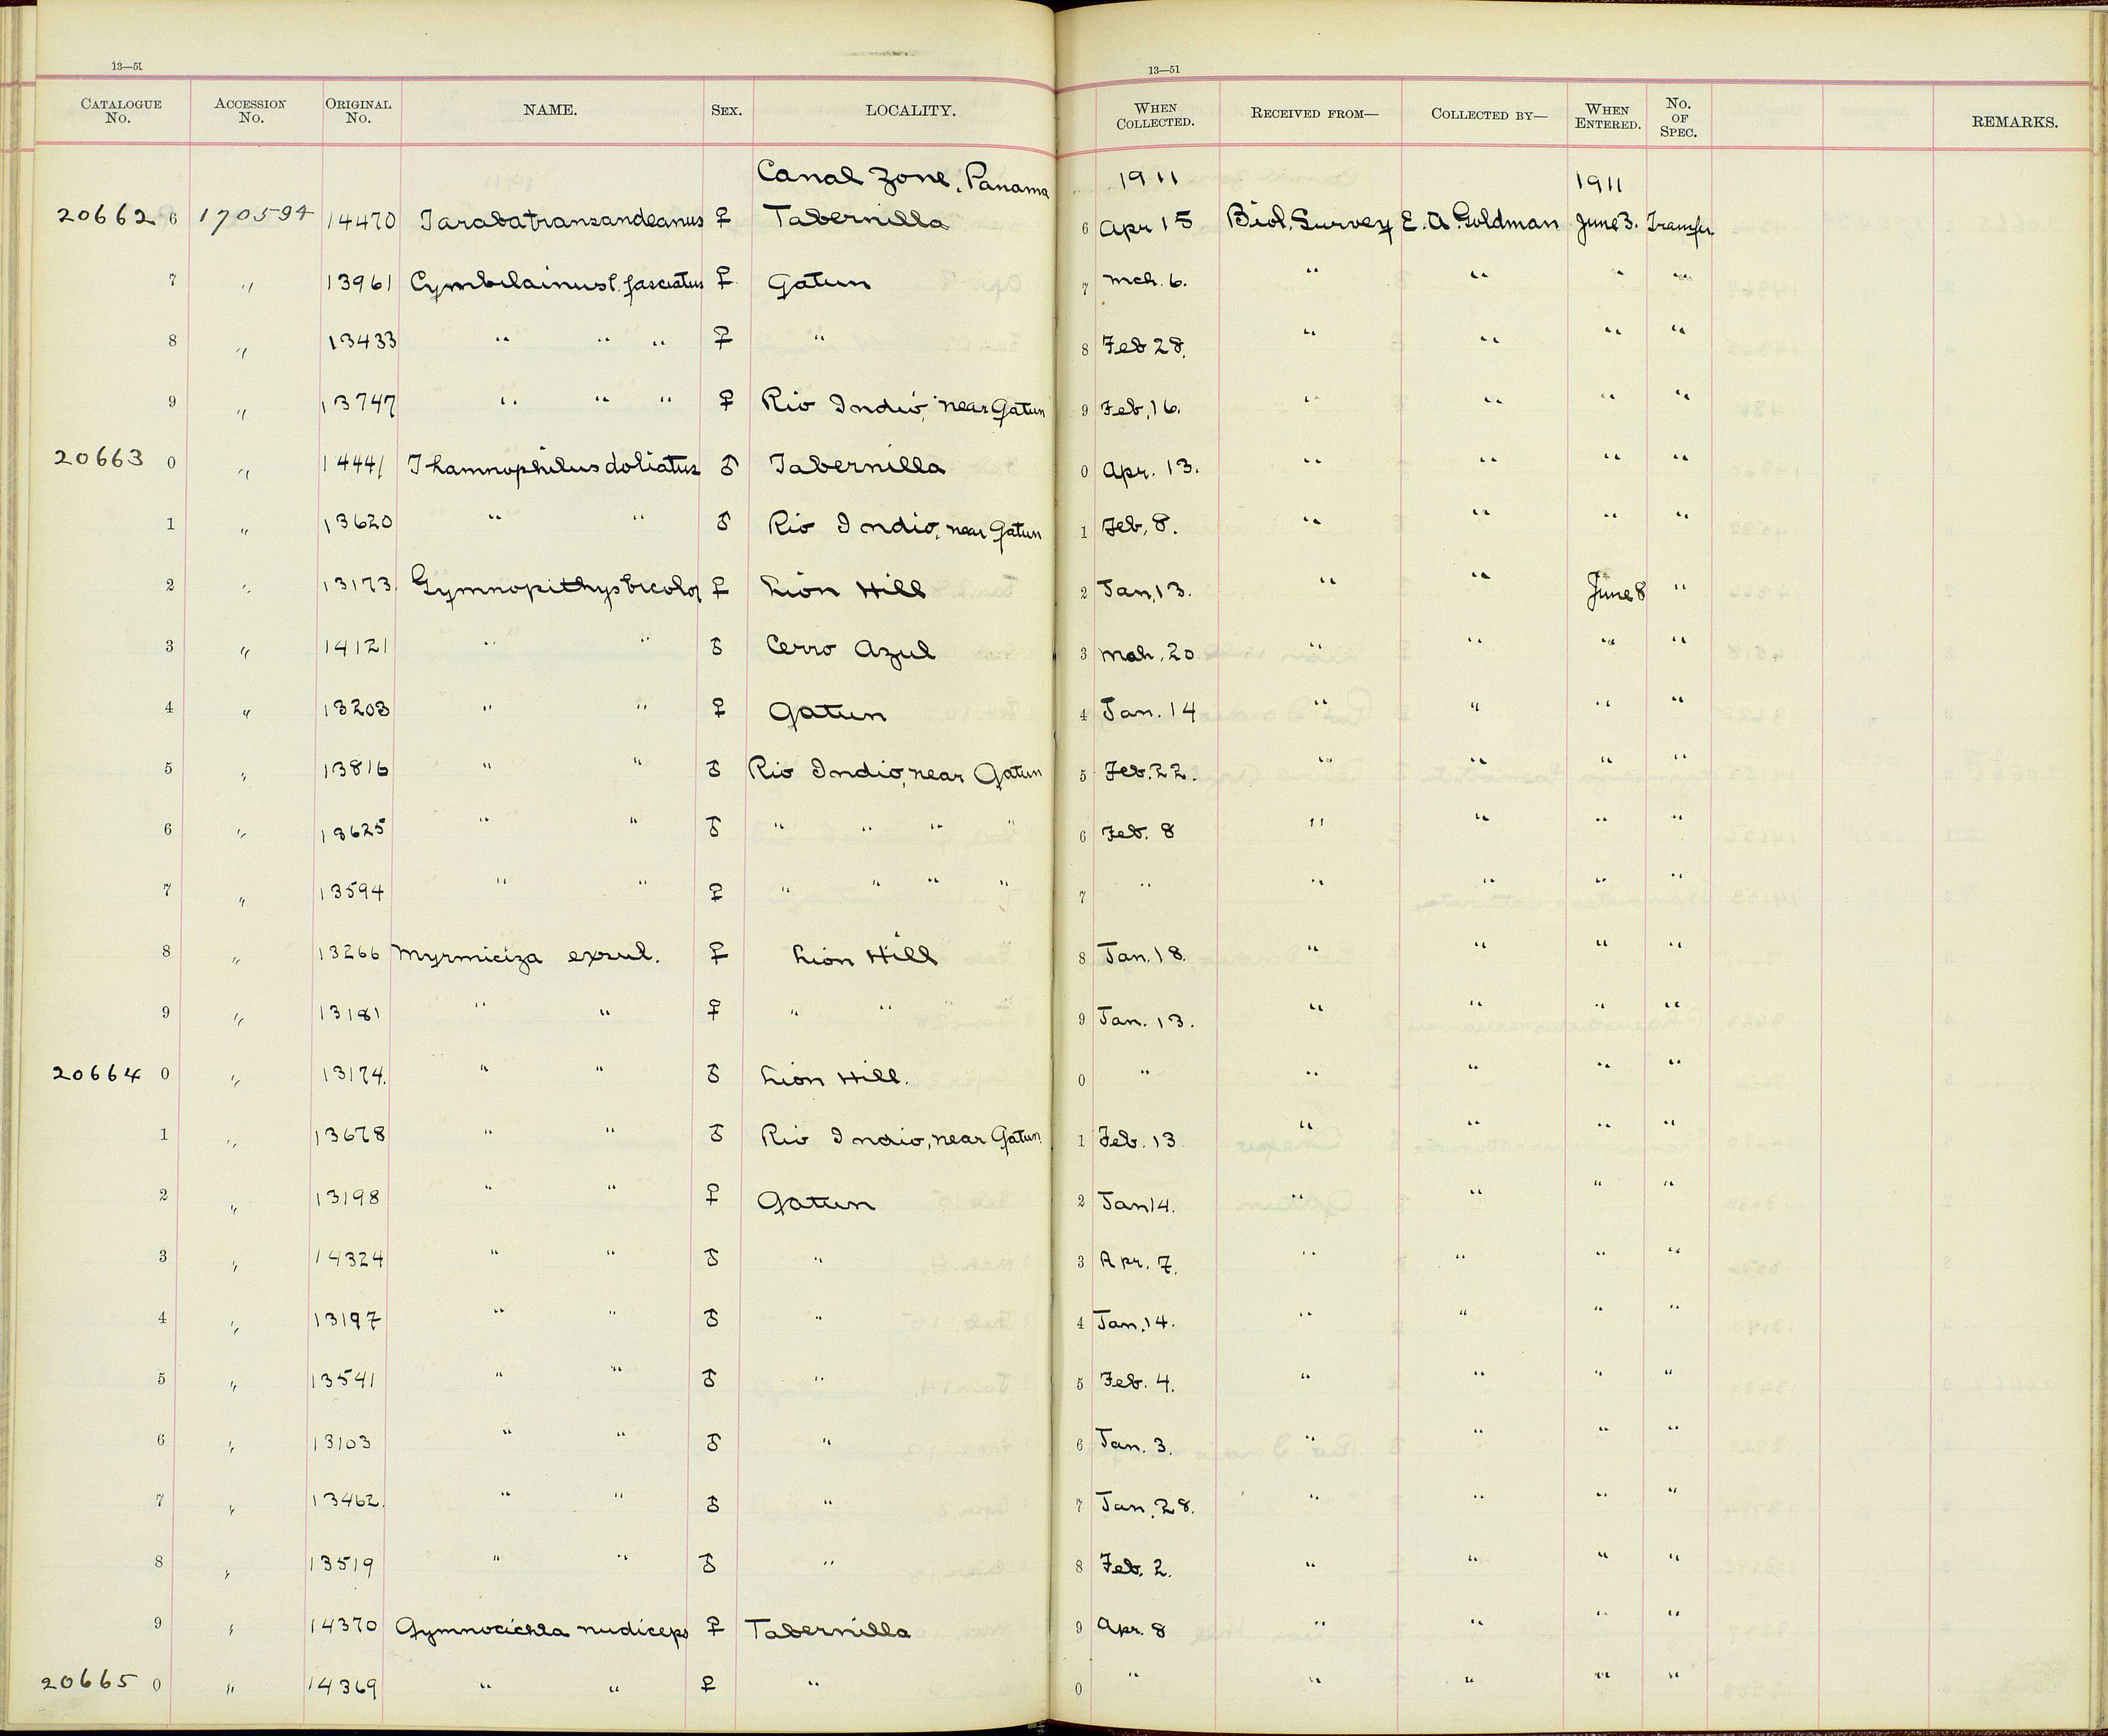 13—51
13—51
CATALOGUE No. ACCESSION No. ORIGINAL No. NAME. SEX. LOCALITY. WHEN COLLECTED. RECEIVED FROM— COLLECTED BY— WHEN ENTERED. No. OF SPEC. REMARKS.
Canal Zone, Panama 1911 1911
20662 6 170594 14470 Taraba transandeanus ♀ Tabernilla 6 Apr 15 Biol. Survey E. A. Goldman June 3. Transfer
7 " 13961 Cymbilainus l. fasciatus ♀ Gatun 7 Mch. 6. " " " "
8 " 13433 " " " ♀ " 8 Feb 28. " " " "
9 " 13747 " " " ♀ Rio Indio, near Gatun 9 Feb, 16. " " " "
20663 0 " 14441 Thamnophilus doliatus ♂ Tabernilla 0 Apr. 13. " " " "
1 " 13620 " " ♂ Rio Indio, near Gatun 1 Feb, 8. " " " "
2 " 13173. Gymnopithys bicolor ♀ Lion Hill 2 Jan, 13. " " June 8 "
3 " 14121 " " ♂ Cerro Azul 3 Mch. 20 " " " "
4 " 13203 " " ♀ Gatun 4 Jan. 14 " " " "
5 " 13816 " " ♂ Rio Indio, near Gatun 5 Feb. 22. " " " "
6 " 13625 " " ♂ " " " " 6 Feb. 8 " " " "
7 " 13594 " " ♀ " " " " 7 " " " " "
8 " 13266 Myrmiciza exsul. ♀ Lion Hill 8 Jan. 18. " " " "
9 " 13181 " " ♀ " " 9 Jan. 13. " " " "
20664 0 " 13174. " " ♂ Lion Hill. 0 " " " " "
1 " 13678 " " ♂ Rio Indio, near Gatun. 1 Feb. 13 " " " "
2 " 13198 " " ♀ Gatun 2 Jan 14. " " " "
3 " 14324 " " ♂ " 3 Apr. 7. " " " "
4 " 13197 " " ♂ " 4 Jan. 14. " " " "
5 " 13541 " " ♂ " 5 Feb. 4. " " " "
6 " 13103 " " ♂ " 6 Jan. 3. " " " "
7 " 13462. " " ♂ " 7 Jan. 28. " " " "
8 " 13519 " " ♂ " 8 Feb. 2. " " " "
9 " 14370 Gymnocichla nudiceps ♀ Tabernilla 9 Apr. 8 " " " "
20665 0 " 14369 " " ♀ " 0 " " " " "